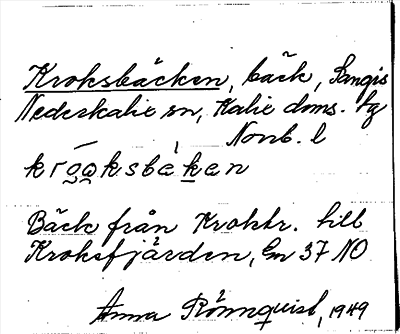 Kroksbäcken, bäck, Sangis
Nederkalix sn, Kalix doms. tg
Norrb. l
kroọksbekan
Bäck från Kroktr. till
Kroksfjärden, Gm 37 NO
Anna Rönnquist, 1949